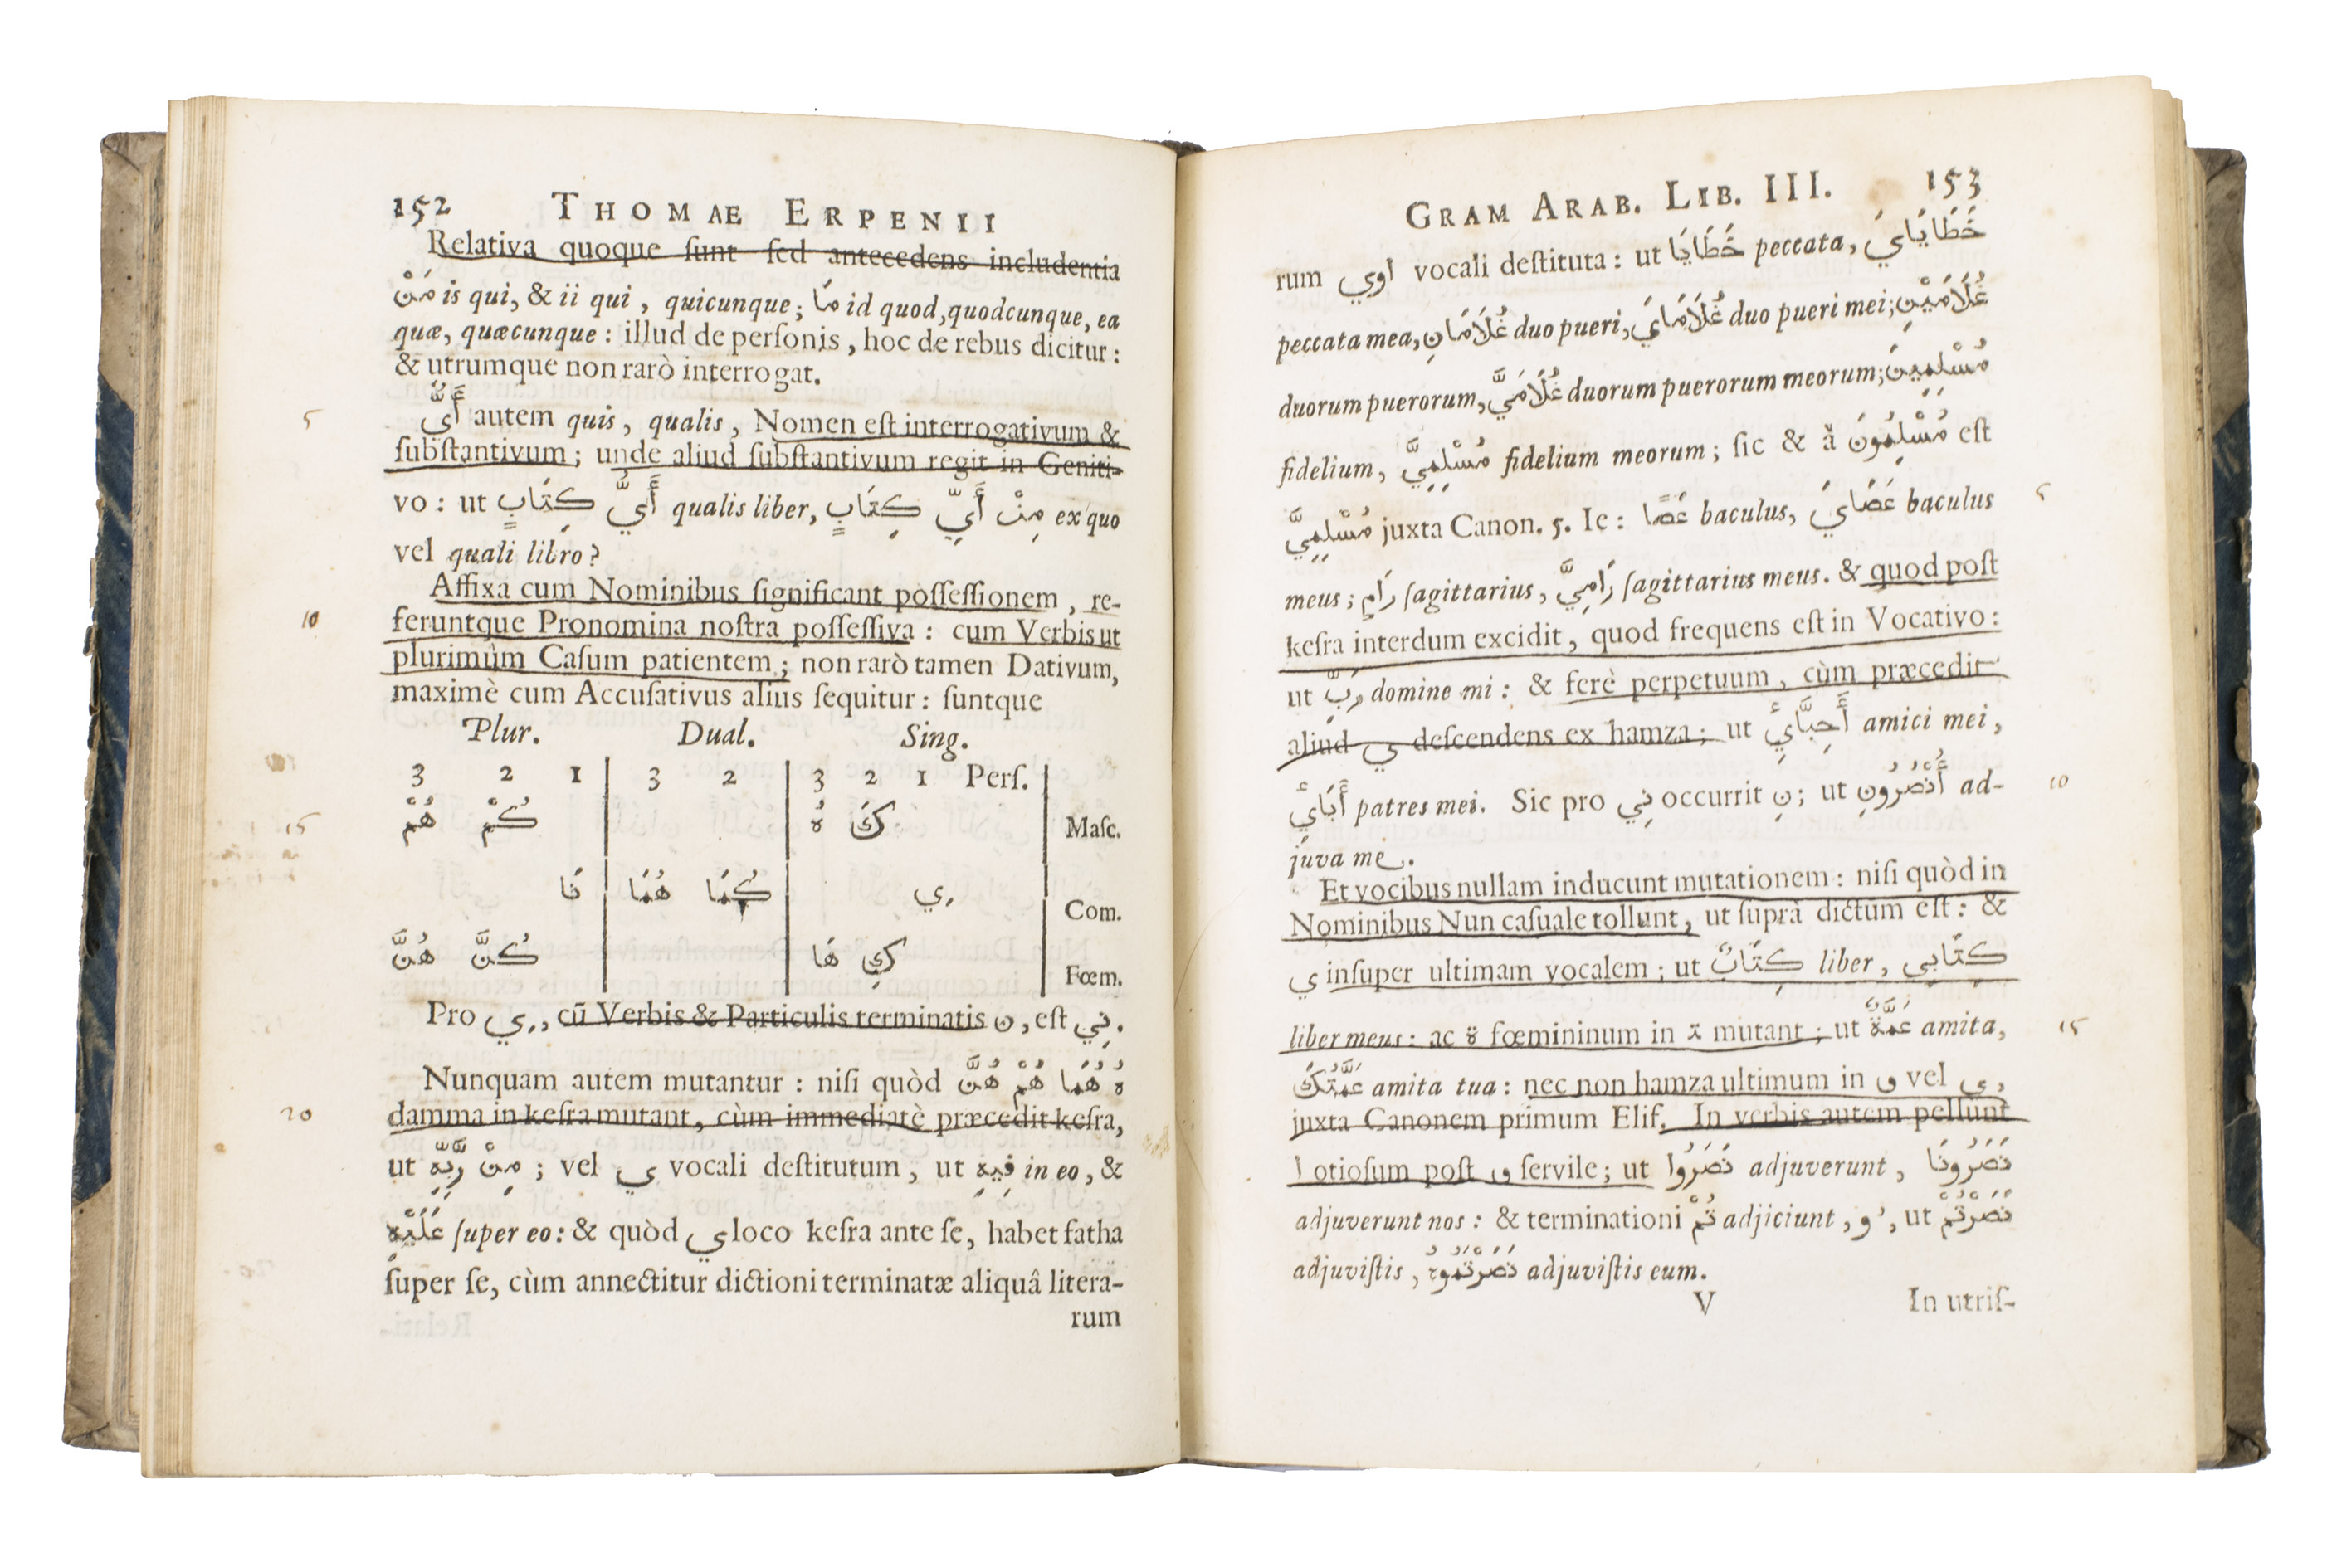 152 THOMAE ERPENII
Relativa quoque ſunt ſed antecedens includentia
مَنْ is qui, & ii qui, quicunque; مَا id quod, quodcunque, ea
quæ, quæcunque: illud de perſonis, hoc de rebus dicitur:
& utrumque non rarò interrogat.
5
أَىٌّ autem quis, qualis, Nomen eſt interrogativum &
ſubſtantivum; unde aliud ſubſtantivum regit in Geniti-
vo: ut أَيُّ كِتَابٍ qualis liber, مِنْ أَيِّ كِتَابٍ ex quo
vel quali libro?
Affixa cum Nominibus ſignificant poſſeſſionem, re-
10
feruntque Pronomina noſtra poſſeſſiva: cum Verbis ut
plurimùm Caſum patientem; non rarò tamen Dativum,
maximè cum Accuſativus alius ſequitur: ſuntque
Plur. Dual. Sing.
3 2 1 3 2 3 2 1 Perſ.
15
هُمْ كُمْ هُ كَ Maſc.
نَا هُمَا كُمَا ـِي Com.
هُنَّ كُنَّ هَا كِ Fœm.
Pro ـِي, cū Verbis & Particulis terminatis ن, eſt نِي.
Nunquam autem mutantur: niſi quòd هُ هُمَا هُمْ هُنَّ
20
damma in keſra mutant, cùm immediatè præcedit keſra,
ut مِنْ رَّبِّهِ; vel ي vocali deſtitutum, ut فِيهِ in eo, &
عَلَيْهِ ſuper eo: & quòd ي loco keſra ante ſe, habet fatha
ſuper ſe, cùm annectitur dictioni terminatæ aliquâ litera-
rum
GRAM ARAB. LIB. III. 153
rum اوي vocali deſtituta: ut خَطَايَا peccata, خَطَايَايَ
peccata mea, غُلَامَانِ duo pueri, غُلَامَايَ duo pueri mei; غُلَامَيْنِ
duorum puerorum, غُلَامَيَّ duorum puerorum meorum; مُسْلِمِينَ
fidelium, مُسْلِمِيَّ fidelium meorum; ſic & à مُسْلِمُونَ eſt
5
مُسْلِمِيَّ juxta Canon. 5. Ie: عَصًا baculus, عَصَايَ baculus
meus; رَامٍ ſagittarius, رَامِيَّ ſagittarius meus. & quod poſt
keſra interdum excidit, quod frequens eſt in Vocativo:
ut رَبِّ domine mi: & ferè perpetuum, cùm præcedit
aliud ي deſcendens ex hamza; ut أَحِبَّائِي amici mei,
10
أَبَائِي patres mei. Sic pro نِي occurrit نِ; ut أُنْصُرُونِ ad-
juva me.
Et vocibus nullam inducunt mutationem: niſi quòd in
Nominibus Nun caſuale tollunt, ut ſuprà dictum eſt: &
ي inſuper ultimam vocalem; ut كِتَابٌ liber, كِتَابِي
15
liber meus: ac ة fœmininum in ت mutant; ut عَمَّةٌ amita,
عَمَّتُكَ amita tua: nec non hamza ultimum in و vel ي,
juxta Canonem primum Elif. In verbis autem pellunt
ا otioſum poſt و ſervile; ut نَصَرُوا adjuverunt, نَصَرُونَا
adjuverunt nos: & terminationi تُمْ adjiciunt ـُو, ut نَصَرْتُمْ
adjuviſtis, نَصَرْتُمُوهُ adjuviſtis eum.
V In utriſ-